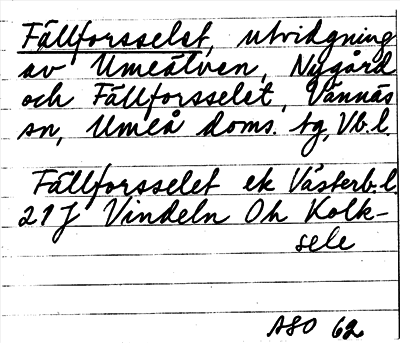 Fällforsselet, utvidgning
av Umeälven, Nygård
och Fällforsselet, Vännäs
sn, Umeå doms. tg, Vb.l.
Fällforsselet ek Västerb.l.
21J Vindeln Oh Kolk-
sele
ASO 62